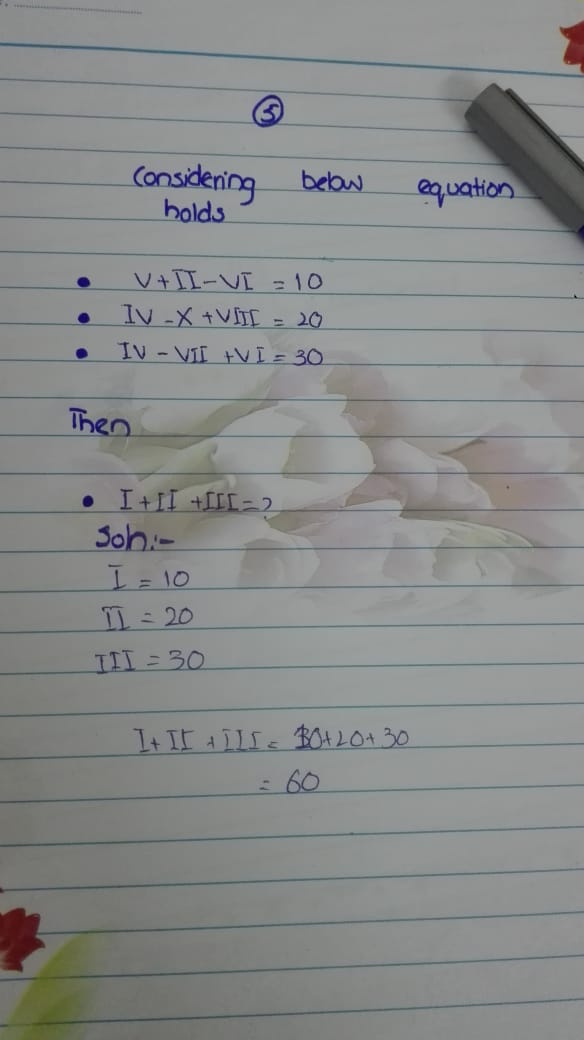 5
Considering below equation
holds
• V+II-VI = 10
• IV -X +VIII = 20
• IV - VII +VI = 30
Then
• I+II +III=?
Soln:-
I = 10
II = 20
III = 30
I+ II +III = 10+20+30
= 60